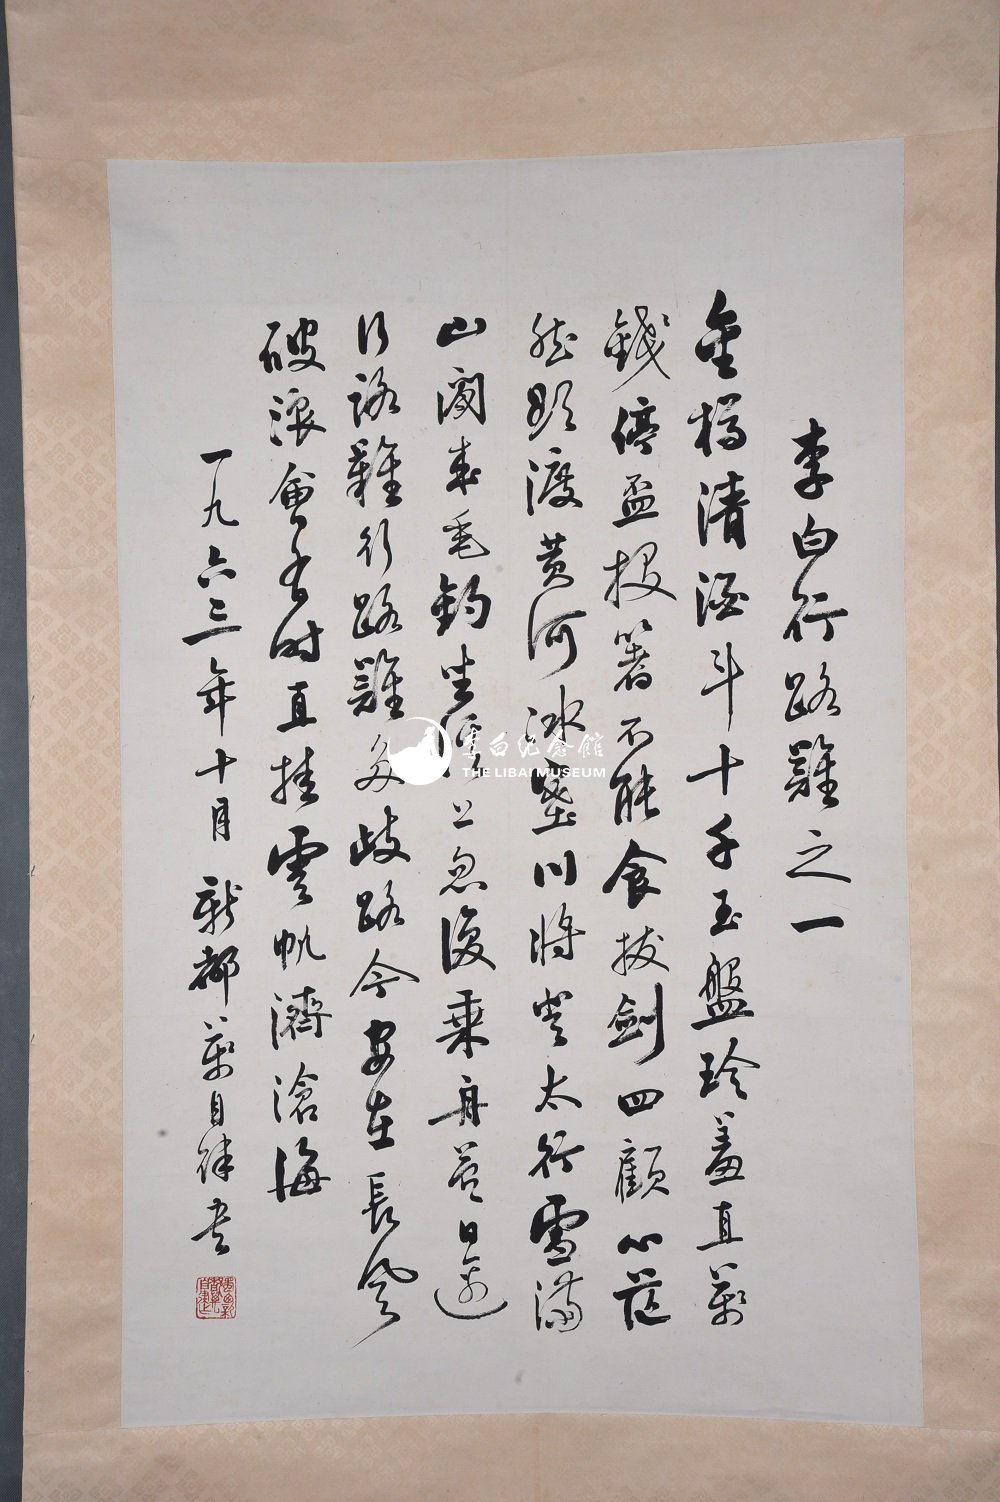 李白行路難之一
金樽清酒斗十千玉盤珍羞直萬
錢停盃投箸不能食拔劍四顧心茫
然欲渡黃河冰塞川將登太行雪滿
山閑來垂釣坐溪上忽復乘舟夢日邊
行路難行路難多歧路今安在長風
破浪會有時直挂雲帆濟滄海
一九六三年十月新都萬自律書
李白纪念館
THE LIBAI MUSEUM